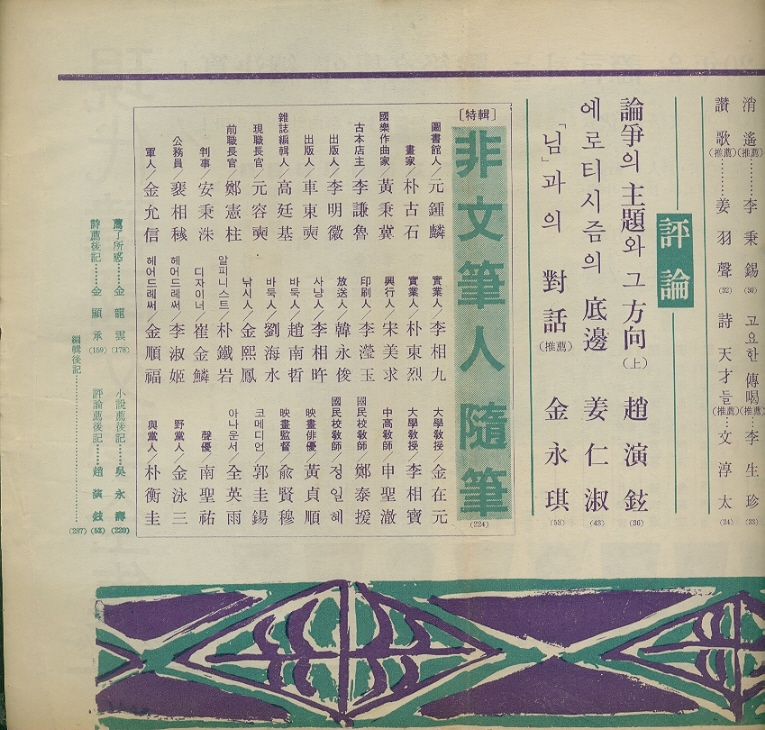 消遙(推薦)………李秉錫(30)
讚歌(推薦)………姜羽聲(32)
고요한 傳喝(推薦)…李生珍(33)
詩 天才들(推薦)…文淳太(34)
評論
論爭의 主題와 그 方向(上) 趙演鉉(36)
에로티시즘의 底邊 姜仁淑(43)
「님」과의 對話(推薦) 金永琪(53)
[特輯]
非文筆人隨筆
(224)
圖書館人/元鍾麟
畫家/朴古石
國樂作曲家/黃秉冀
古本店主/李謙魯
出版人/李明徽
出版人/車東奭
雜誌編輯人/高廷基
現職長官/元容奭
前職長官/鄭憲柱
判事/安秉洙
公務員/裵相穢
軍人/金允信
實業人/李相九
實業人/朴東烈
興行人/宋美求
印刷人/李瀅玉
放送人/韓永俊
사냥人/李相旿
바둑人/趙南哲
바둑人/劉海水
낚시人/金熙鳳
알피니스트/朴鐵岩
디자이너/崔金鱗
헤어드레써/李淑姬
헤어드레써/金順福
大學敎授/金在元
大學敎授/李相寶
中高敎師/申聖澈
國民校敎師/鄭泰援
國民校敎師/정일혜
映畫俳優/黃貞順
映畫監督/兪賢穆
코메디언/郭圭錫
아나운서/全英雨
聲優/南聖祐
野黨人/金泳三
與黨人/朴衡圭
薦了所感……金龍雲(178)
小說薦後記……吳永壽(220)
詩薦後記……金顯承(159)
評論薦後記……趙演鉉(52)
編輯後記……(287)